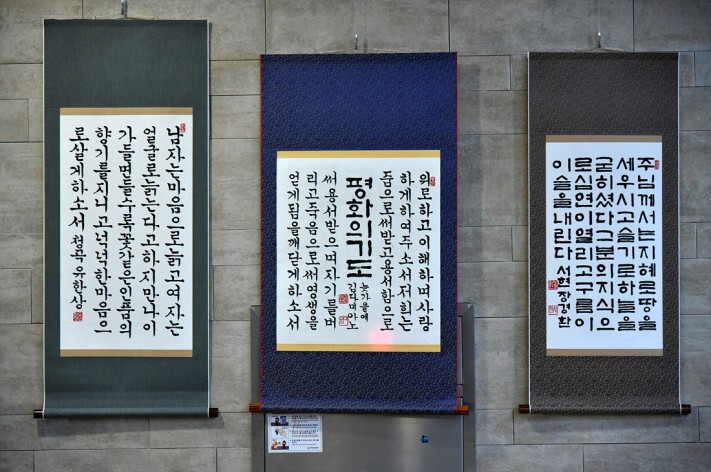 남자는마음으로늙고여자는
얼굴로늙는다고하지만나이
가들면들수록꽃같은인품의
향기를지니고넉넉한마음으
로살게하소서 유한상
위로하고이해하며사랑
하게하여주소서저희는
줌으로써받고용서함으로
평화의기도
늦가을에
김다미아노
써용서받으며자기를버
리고죽음으로써영생을
얻게됨을깨닫게하소서
주님께서는지혜로땅을
세우시고슬기로하늘을
굳히셨다그분의지식으
로심연이열리고구름이
이슬을내린다 서현장경환